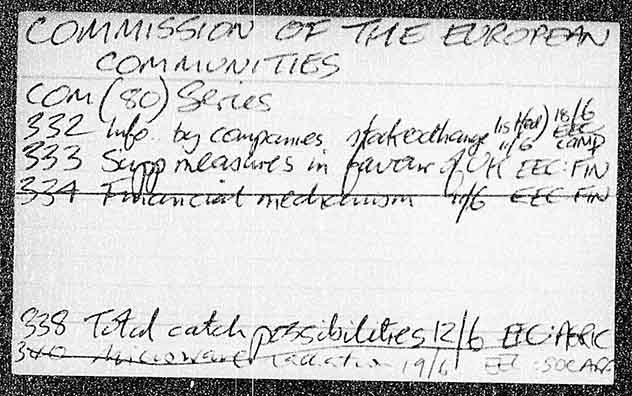 COMMISSION OF THE EUROPEAN
COMMUNITIES
COM (80) Series
332 Info. by companies stock exchange listed) 18/6 EEC: COMP 11/6
333 Supp measures in favour of UK EEC: FIN
334 Financial mechanism 11/6 EEC FIN
338 Total catch possibilities 12/6 EEC: AGRIC
340 Microwave radiation 19/6 EEC: SOC AFF